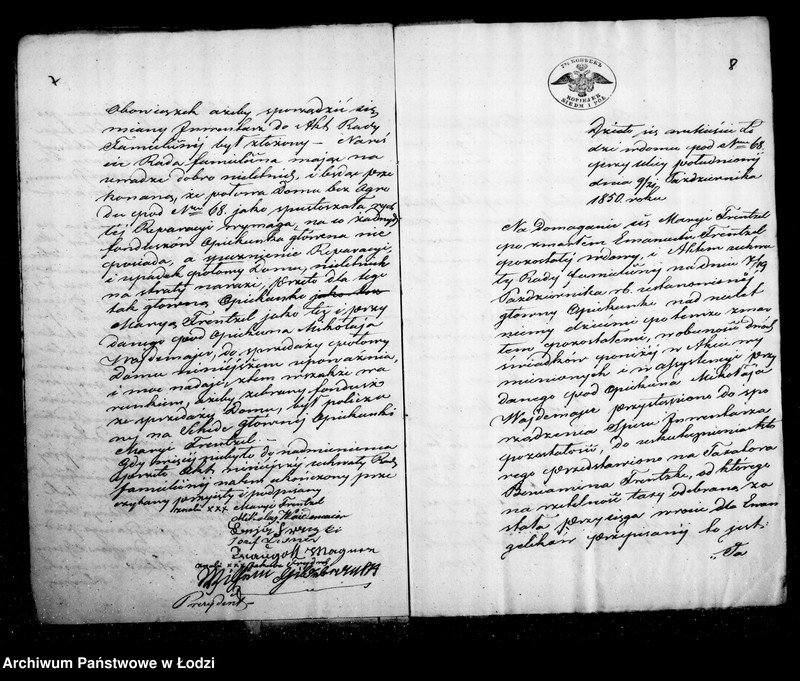 Obowiązek ażeby sporządzić się
miany Inwentarz do Akt Rady
Familijnéj był złożony — Nare
cie Rada familijna mając na
uwadze dobro nieletnich, i będąc prze
konana, że połowa Domu bez Ogro
du pod Nrem 68. jako spustoszała
téj Reparacyi wymaga, na co żadnych
funduszów Opiekunka główna nie
posiada, a
i upadek połowy Domu, nieletnich
na straty naraża, przeto dla tego
tak główną Opiekunkę
Maryą Frentzel jako też i przy
danego pod Opiekuna Mikołaja
Wajdemajer, do sprzedaży połowy
Domu niniejszem upoważnia,
i moc nadaje, z tem wszakże wa
runkiem, ażeby zebrany fundusz
ze sprzedaży Domu, był policzo
ny na Schedę głównéj Opiekunki
Maryi Frentzel —
Gdy więcéj niebyło do nadmienienia
przeto Akt niniejszy uchwały Rady
familijnéj został ukończony prze
czytany przyjęty i podpisany
znaki xxx Maryi Frentzel
Mikołaj Waidemaier
Traugott Wagner
znaki xxx
Wilhelm
Prezydent
8
7½ KOPIEJEK
SIEDM I PÓŁ
Działo się w mieście Ło
dzi w domu pod Nrem 68.
przy ulicy południowéj
dnia 9/21 Października
1850. roku
Na domaganie się Maryi Frentzel
po zmarłem Emanuelu Frentzel
pozostałéj wdowy, i Aktem uchwa
ły Rady familijnéj na dniu 7/19
Października rb. ustanowionéj
głównéj Opiekunki nad nielet
niemi dziećmi po temże zmar
łem pozostałemi, w obecności dwóch
świadków poniżéj w Akcie wy
mienionych i w assystencyi przy
danego pod Opiekuna Mikołaja
Wajdemajer przystąpiono do spo
rządzenia Spisu Inwentarza
pozostałości, do uskutecznienia któ
rego przedstawiono na Taxatora
Beniamina Frentzke, od którego
na rzetelność taxy odebraną zo
stała przysięga w rocie dla Ewan
gielików przepisanéj to jest:
"Ja
Archiwum Państwowe w Łodzi